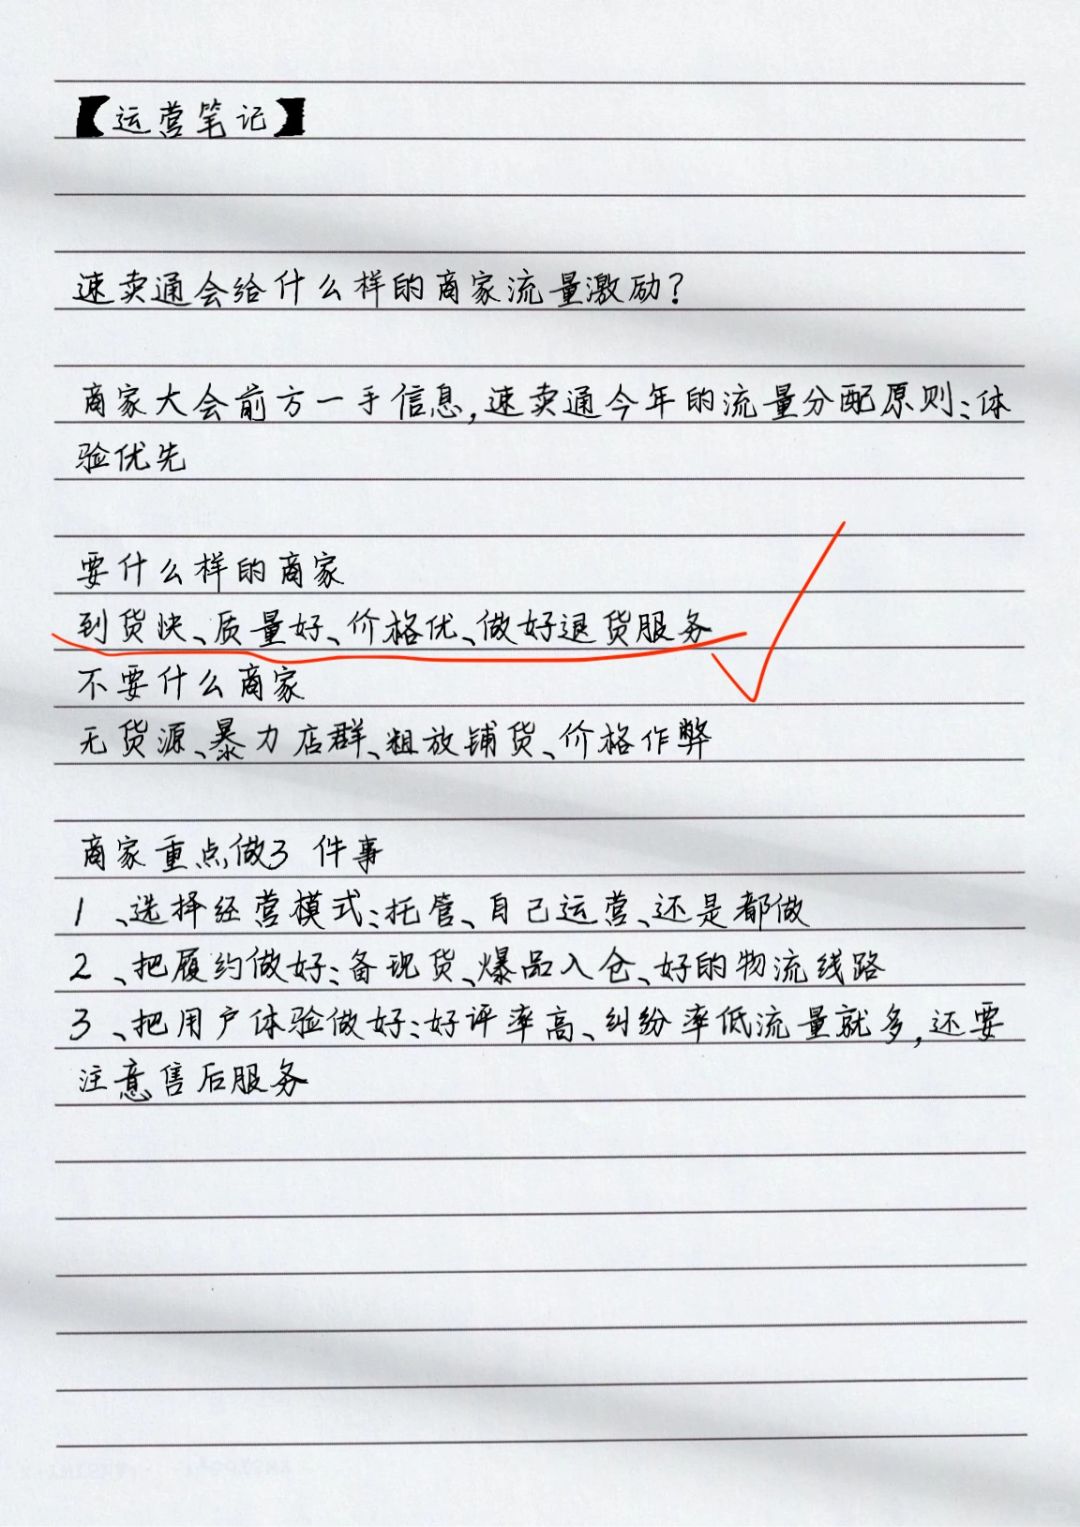 【运营笔记】
速卖通会给什么样的商家流量激励?
商家大会前方一手信息,速卖通今年的流量分配原则:体
验优先
要什么样的商家
到货快、质量好、价格优、做好退货服务
不要什么商家
无货源、暴力店群、粗放铺货、价格作弊
商家重点做3 件事
1 、选择经营模式:托管、自己运营、还是都做
2 、把履约做好:备现货、爆品入仓、好的物流线路
3 、把用户体验做好:好评率高、纠纷率低流量就多,还要
注意售后服务